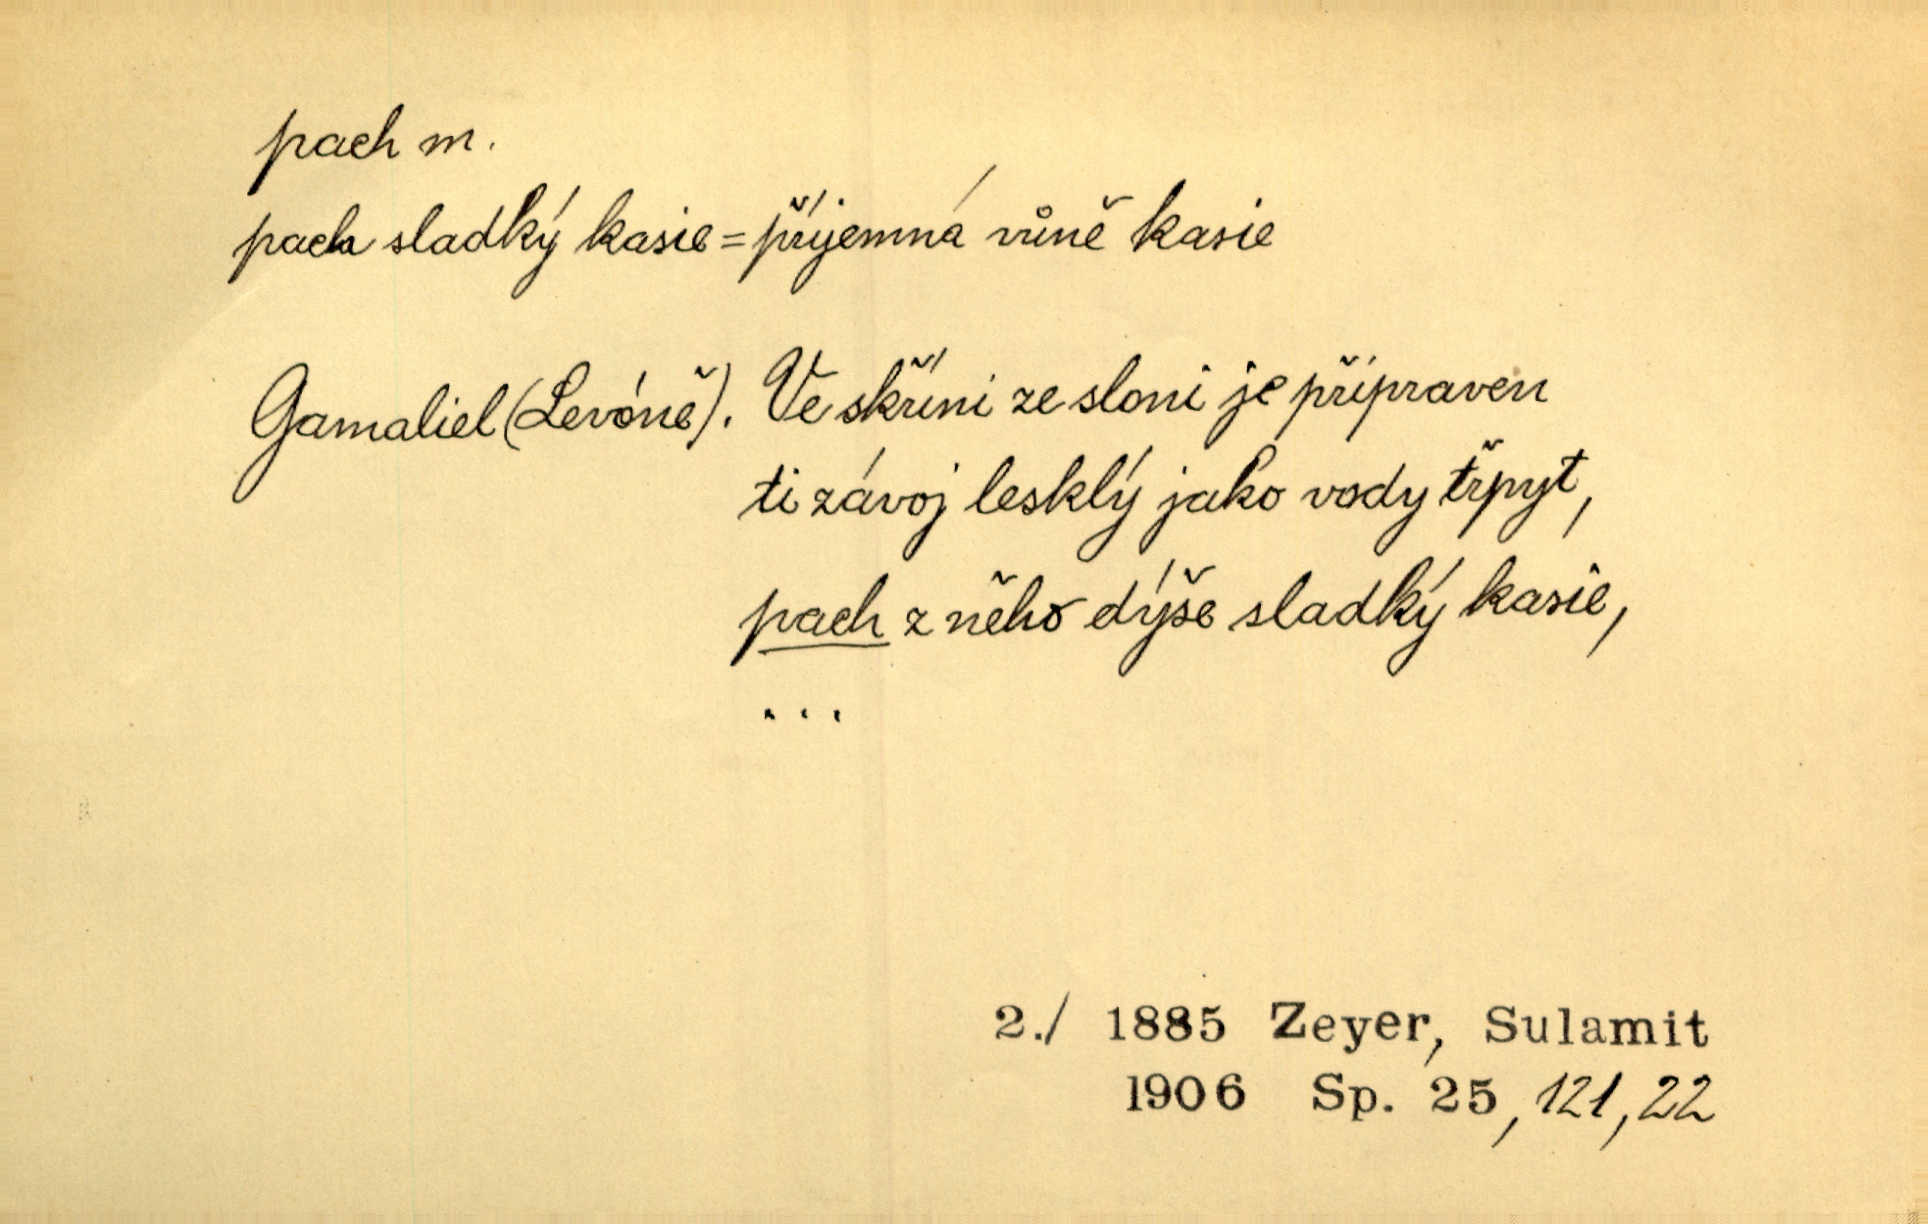 pach m.
pach sladký kasie = příjemná vůně kasie
Gamaliel (Levóně). Ve skříni ze sloni je připraven
ti závoj lesklý jako vody třpyt,
pach z něho dýše sladký kasie,
...
2./ 1885 Zeyer, Sulamit
1906 Sp. 25, 121, 22